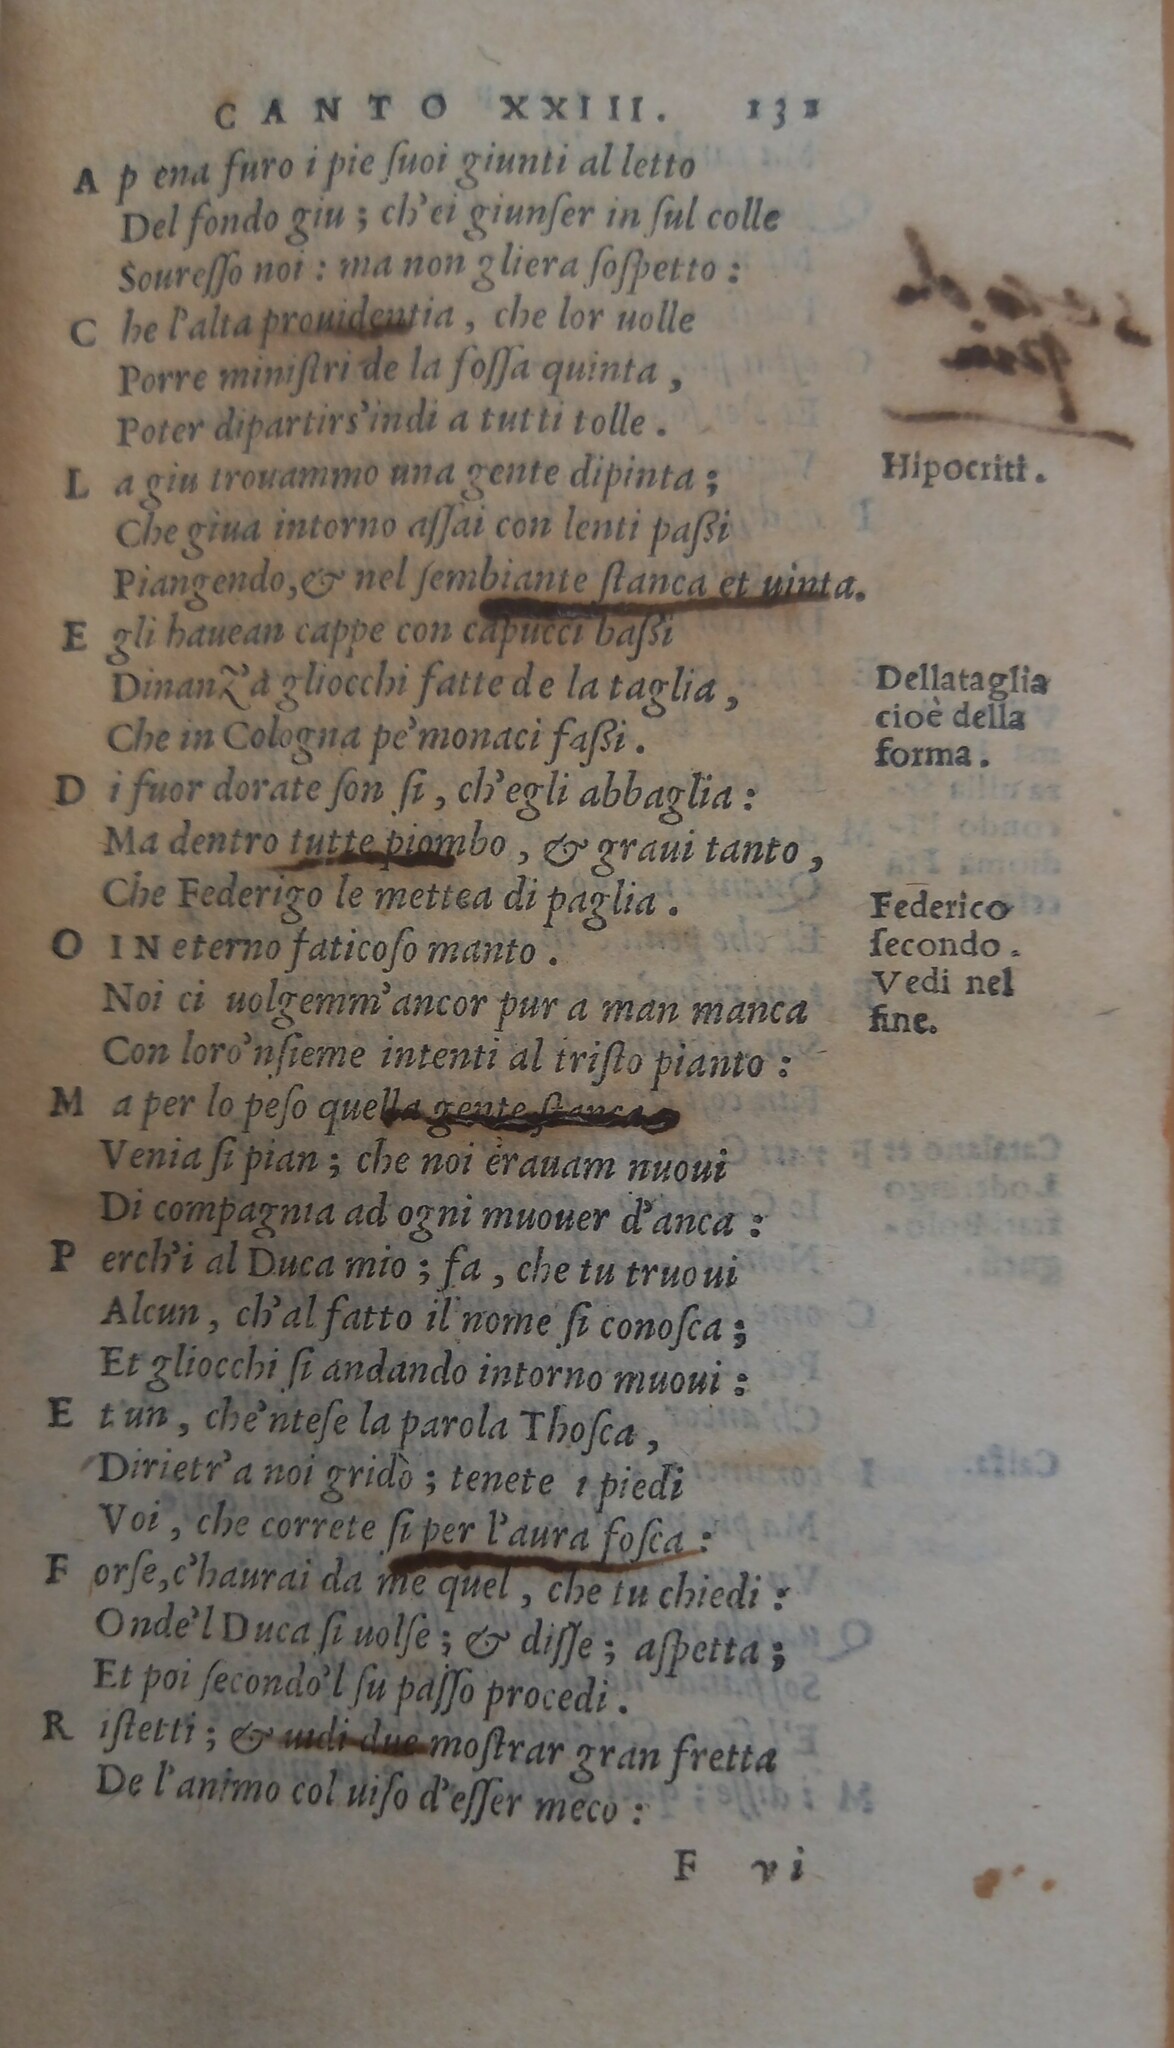 CANTO XXIII. 131
A p ena furo i pie ſuoi giunti al letto
Del fondo giu ; ch'ei giunſer in ſul colle
Soureſſo noi : ma non gliera ſoſpetto :
C he l'alta prouidentia , che lor uolle
Porre miniſtri de la foſſa quinta ,
Poter dipartirs'indi a tutti tolle .
L a giu trouammo una gente dipinta ;
Hipocriti .
Che giua intorno aſſai con lenti paßi
Piangendo,& nel ſembiante ſtanca et uinta.
E gli hauean cappe con capucci baßi
Dinanz'a gliocchi fatte de la taglia ,
Dellataglia
cioè della
forma .
Che in Cologna pe'monaci faßi .
D i fuor dorate ſon ſi , ch'egli abbaglia :
Ma dentro tutte piombo , & graui tanto ,
Che Federigo le mettea di paglia .
Federico
ſecondo .
Vedi nel
fine.
O IN eterno faticoſo manto .
Noi ci uolgemm'ancor pur a man manca
Con loro'nſieme intenti al triſto pianto :
M a per lo peſo quella gente ſtanca
Venia ſi pian ; che noi erauam nuoui
Di compagnia ad ogni muouer d'anca :
P erch'i al Duca mio ; fa , che tu truoui
Alcun , ch'al fatto il nome ſi conoſca ;
Et gliocchi ſi andando intorno muoui :
E t un , che'nteſe la parola Thoſca ,
Dirietr'a noi gridò ; tenete i piedi
Voi , che correte ſi per l'aura foſca :
F orſe,c'haurai da me quel , che tu chiedi :
Onde'l Duca ſi uolſe ; & diſſe ; aſpetta ;
Et poi ſecondo'l ſu paſſo procedi .
R iſtetti ; & uidi due moſtrar gran fretta
De l'animo col uiſo d'eſſer meco :
F vi